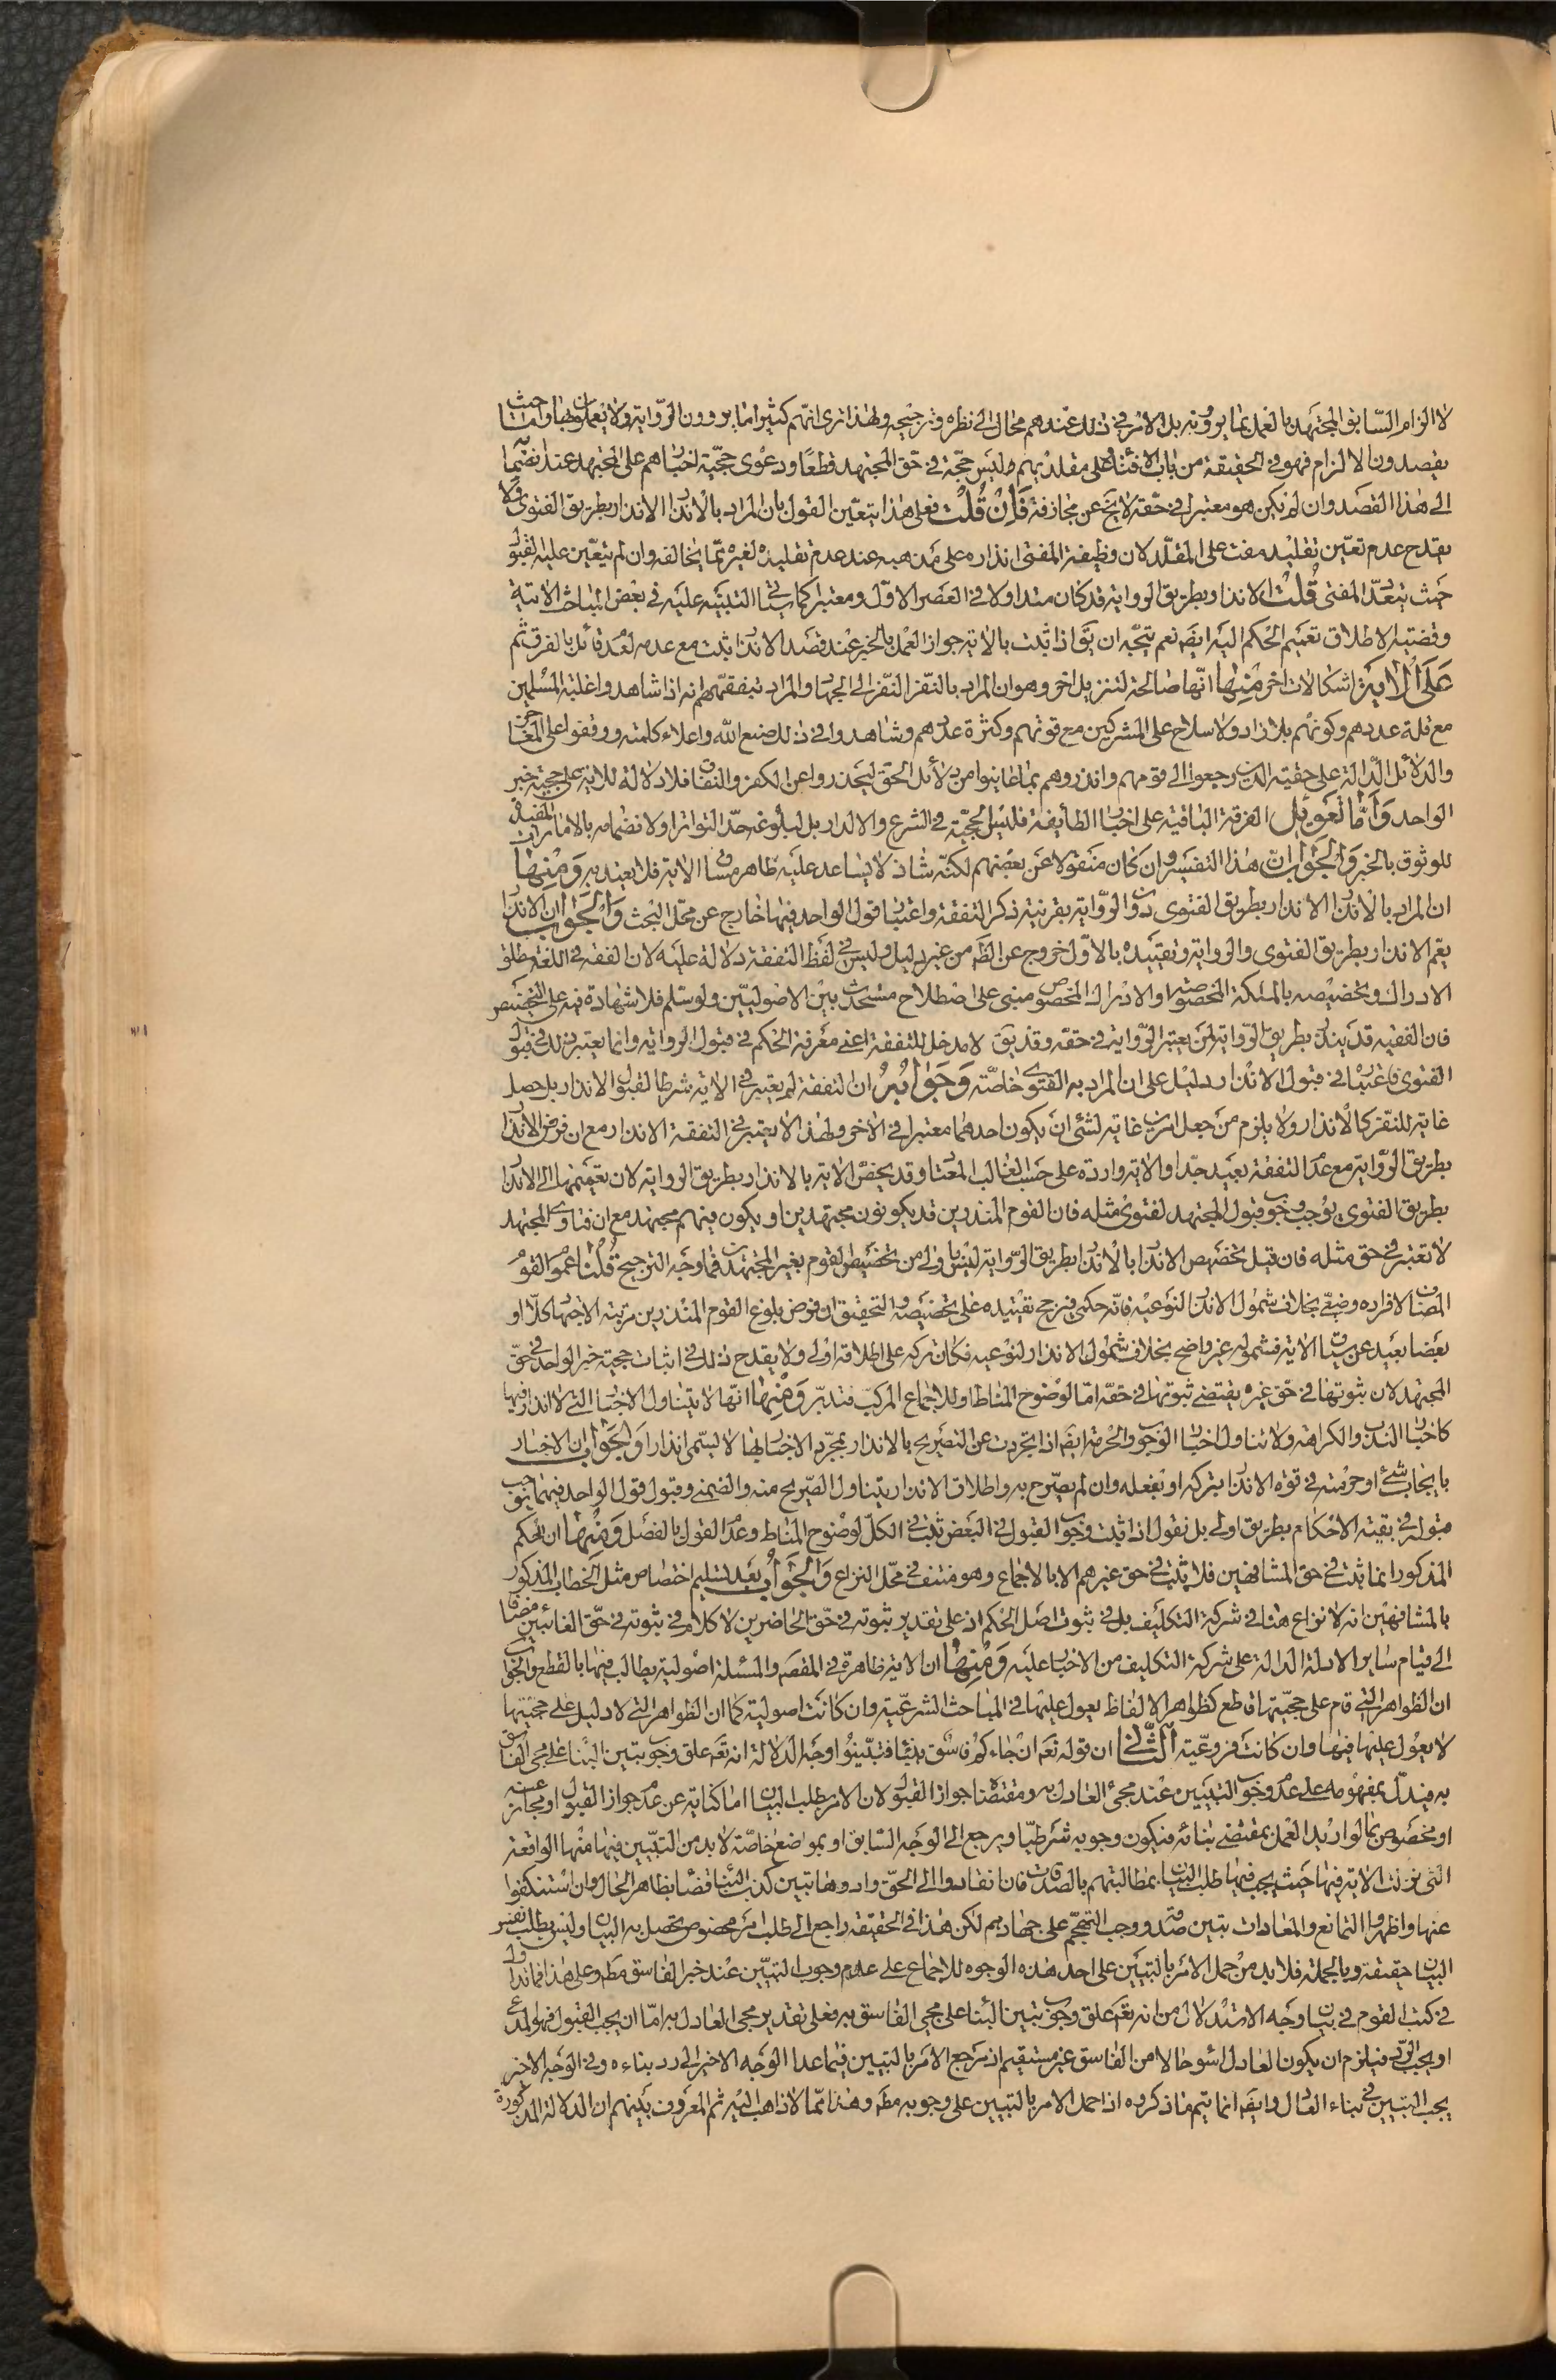 لا الزام السّابق المجتهد بالعمل بما يروونه بل الامر في ذلك عندهم محال الى نظره وترجيحه ولهذا ترى انهم كثيرا ما يروون الرّواية ولا يعملون بها وحيث
يقصدون الالزام فهو في الحقيقة من باب الافتاء على مقلديهم وليس حجّة في حق المجتهد قطعًا ودعوى حجيّة اخبارهم على المجتهد عند انضمامها
الى هذا القصد وان لم يكن هو معتبرا في حقه لا يخ عن مجازفة فَاِنْ قُلْتَ فعلى هذا يتعيّن القول بان المراد بالانذار الانذار بطريق الفتوى ولا
يقدح عدم تعيّن تقليد مفت على المقلّد لان وظيفة المفتى انذاره على مذهبه عند عدم تقليده لغيره ممّا يخالفه وان لم يتعيّن عليه لقبول
حيث يتعدّد المفتى قُلْتُ الانذار بطريق الرواية قد كان متداولا في العصر الاوّل ومعتبرا كما سيأتي التنبيه عليه في بعض المباحث الاتية
وقضية الاطلاق تعميم الحكم اليه ايضا نعم يتجّه ان يق اذا ثبت بالاية جواز العمل بالخبر عند قصد الانذار ثبت مع عدمه لعدم قائل بالفرق ثم
عَلَى الْاٰيَةِ اشكالات اخر مِنْهٰا انّها صالحة لتنزيل اخر وهو ان المراد بالنّفر النّفر الى الجهاد والمراد بتفقههم انه اذا شاهدوا غلبة المسلمين
مع قلة عددهم وكونهم بلا زاد ولا سلاح على المشركين مع قوتهم وكثرة عدّهم وشاهدوا في ذلك صنع الله واعلاء كلمته ووقفوا على المعاجز
والدلائل الدّالة على حقية الدين رجعوا الى قومهم وانذروهم بما عاينوا من دلائل الحق ليحذروا عن الكفر والنفاق فلا دلالة للاية على حجية خبر
الواحد وَاَمَّا تَعْوِيْلُ الفرقة الباقية على اخبار الطائفة فليس لحجيّة في الشرع والا لدار بل لبلوغه حدّ التواتر او لانضمامه بالامارات المفيدة
للوثوق بالخبر وَالْجَوٰابُ انّ هذا التفسير وان كان منقولا عن بعضهم لكنّه شاذ لا يساعد عليه ظاهر مساق الاية فلا يعتد به وَمِنْهٰا
ان المراد بالانذار الانذار بطريق الفتوى دون الرّواية بقرينة ذكر التفقه واعتبار قول الواحد فيها خارج عن محلّ البحث وَالْجَوٰابُ ان الانذار
يعم الانذار بطريق الفتوى والرواية وتقييده بالاوّل خروج عن الظّ من غير دليل وليس في لفظ التفقه دلالة عليه لان الفقه في اللغة مطلق
الادراك وتخصيصه بالملكة المخصوصة او الادراك المخصوص مبنى على اصطلاح مستحدث بين الاصوليّين ولو سلّم فلا شهادة فيه على التخصيص
فان الفقيه قد ينذر بطريق الرّواية لمن يعتبر الرّواية في حقه وقد يق لا مدخل للتفقه اعنى معرفة الحكم في قبول الرواية وانما يعتبر ذلك في قبول
الفتوى فاعتبارها في قبول الانذار دليل على ان المراد به الفتوى خاصّة وَجَوٰابُهُ ان التفقه لم يعتبر في الاية شرطا لقبول الانذار بل جعل
غاية للنّفر كالانذار ولا يلزم من جعل امرين غاية لشئ ان يكون احدهما معتبرا في الاخر ولهذا لا يعتبر في التفقه الانذار مع ان فرض الانذار
بطريق الرّواية مع عدم التفقه بعيد جدّا والاية واردة على حسب الغالب المعتاد وقد يخصّ الاية بالانذار بطريق الرواية لان تعميمها الى الانذار
بطريق الفتوى يوجب وجوب قبول المجتهد لفتوى مثله فان القوم المنذرين قد يكونون مجتهدين او يكون فيهم مجتهد مع ان فتاوى المجتهد
لا تعتبر في حق مثله فان قيل تخصيص الانذار بالانذار بطريق الرّواية ليس باولى من تخصيص لقوم بغير المجتهدين فما وجه الترجيح قُلْنٰا عموم القوم
المضاف لافراده وضعّي بخلاف شمول الانذار لنوعيه فانّه حكمى فيرجح تقييده على تخصيصه والتحقيق ان فرض بلوغ القوم المنذرين مرتبة الاجتهاد كلّا او
بعضا بعيد عن مساق الاية فشموله غير واضح بخلاف شمول الانذار لنوعيه فكان تركه على اطلاقه اولى ولا يقدح ذلك في اثبات حجية خبر الواحد في حقّ
المجتهد لان ثبوتها في حق غيره يقتضى ثبوتها في حقه امّا لوضوح المناط او للاجماع المركّب فتدبّر وَمِنْهٰا انّها لا يتناول الاخبار التى لا انذار فيها
كاخبار الندب والكراهة ولا تتناول اخبار الوجوب والحرمة ايضا اذا تجردت عن التصريح بالانذار بمجرّد الاخبار بها لا يسمّى انذارا وَالْجَوٰابُ ان الاخبار
بايجاب شئ او حرمته في قوة الانذار بتركه او بفعله وان لم يصرّح به واطلاق الانذار يتناول الصّريح منه والضمنى وقبول قول الواحد فيهما يوجب
قبوله في بقية الاحكام بطريق اولى بل نقول اذا ثبت وجوب القبول في البعض ثبت في الكلّ لوضوح المناط وعدم القول بالفصل وَمِنْهٰا ان الحكم
المذكور انما ثبت في حق المشافهين فلا يثبت في حق غيرهم الا بالاجماع وهو منتف في محلّ النزاع وَالْجَوٰابُ بعد تسليم اختصاص مثل الخطاب المذكور
بالمشافهين انه لا نزاع هنا في شركة التكليف بل في ثبوت اصل الحكم اذ على تقدير ثبوته في حقّ الحاضرين لا كلام في ثبوته في حقّ الغائبين مضافا
الى قيام ساير الادلة الدالة على شركة التكليف من الاخبار عليه وَمِنْهٰا ان الاية ظاهرة في المقصد والمسئلة اصولية يطالب فيها بالقطع والجواب
ان الظواهر التى قام على حجيّتها قاطع كظواهر الالفاظ يعول عليها في المباحث الشرعيّة وان كانت اصولية كما ان الظواهر التى لا دليل على حجيّتها
لا يعول عليها فيها وان كانت فروعيّة اَلثّٰانِي ان قوله تعم ان جاءكم فاسق بنبأ فتبيّنوا وجه الدلالة انه تعم علق وجوب تبين النبأ على مجئ الفاسق
به فيدلّ بمفهومه على عدم وجوب التبيين عند مجئ العادل به ومقتضاه جواز القبول لان الامر بطلب البيان اما كناية عن عدم جواز القبول او مجاز عنه
او مخصوص بما لو اريد العمل بمقتضى بنائه فيكون وجوبه شرطيّا ويرجع الى الوجه السّابق او بمواضع خاصّة لا بد من التبيّن فيها منها الواقعة
التى نزلت الاية فيها حيث يجب فيها طلب البيان بمطالبتهم بالصدقات فان انقادوا الى الحقّ وادوها تبين كذب النبأ قضاء بظاهر الحال وان استنكفوا
عنها واظهروا التمانع والمعادات تبين صدقه ووجب التهجّم على جهادهم لكن هذا في الحقيقة راجع الى طلب امر مخصوص يحصل به البيان وليس بطلب نفس
البيان حقيقة وبالجملة فلا بد من حمل الامر بالتبيّن على احد هذه الوجوه للاجماع على عدم وجوب التبيّن عند خبر الفاسق مطر وعلى هذا فما تداول
في كتب القوم في بيان وجه الاستدلال من انه تعم علق وجوب تبين النبأ على مجئ الفاسق به فعلى تقدير مجئ العادل به امّا ان يجب القبول فهو المدعى
او يجب الردّ فيلزم ان يكون العادل اسوء حالا من الفاسق غير مستقيم اذ مرجع الامر بالتبيين فيما عدا الوجه الاخير الى رد بناءه وفى الوجه الاخير
يجب التبيين في بناء العادل وايضا انما يتم ما ذكروه اذا حمل الامر بالتبيين على وجوبه مطر وهذا ممّا لا ذاهب اليه ثم المعروف بينهم ان الدلالة المذكورة